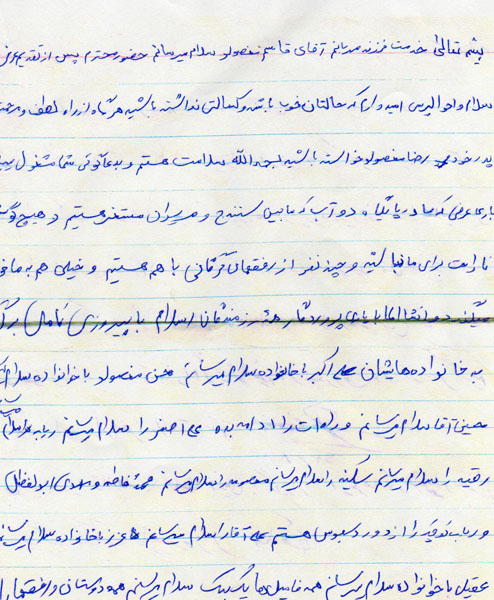 بسمه تعالی خدمت فرزند مهربانم آقای قاسم معصولو سلام میرسانم حضور محترم پس از تقدیم عرض
سلام و احوالپرسی امیدوارم که حالتان خوب باشد و کسالتی نداشته باشید هرگاه از راه لطف و مرحمت
پدر خود رضا معصولو خواسته باشید بحمدالله سلامت هستم و به دعاگوئی شما مشغول
باری عرضی که ما در پایگاه دو آب که مابین سنندج و مریوان مستقر هستیم و هیچ گونه
ناراحت برای ما نباشید و چند نفر از رفقهای گرگانی با هم هستیم و خیلی هم به ما خوش
میگذرد و انشاالله با یاری پروردگار همه رزمندگان اسلام با پیروزی کامل برگ
به خانواده هایشان علی اکبر با خانواده سلام میرسانم حسن معصولو با خانواده سلام
حسین آقا سلام میرسانم و را ادامه بده علی اصغر را سلام میرسانم ربابه را سلام
رقیه را سلام میرسانم سکینه را سلام میرسانم معصومه را سلام میرسانم فاطمه و مهدی ابولفضل
و را از دور دسبوس هستم علی آقا را سلام میرسانم عزیز با خانواده سلام میرسانم
عقیل با خوانواده سلام میرسانم همه فامیل ها یک یک سلام میرسانم همه دوستان و رفقهای